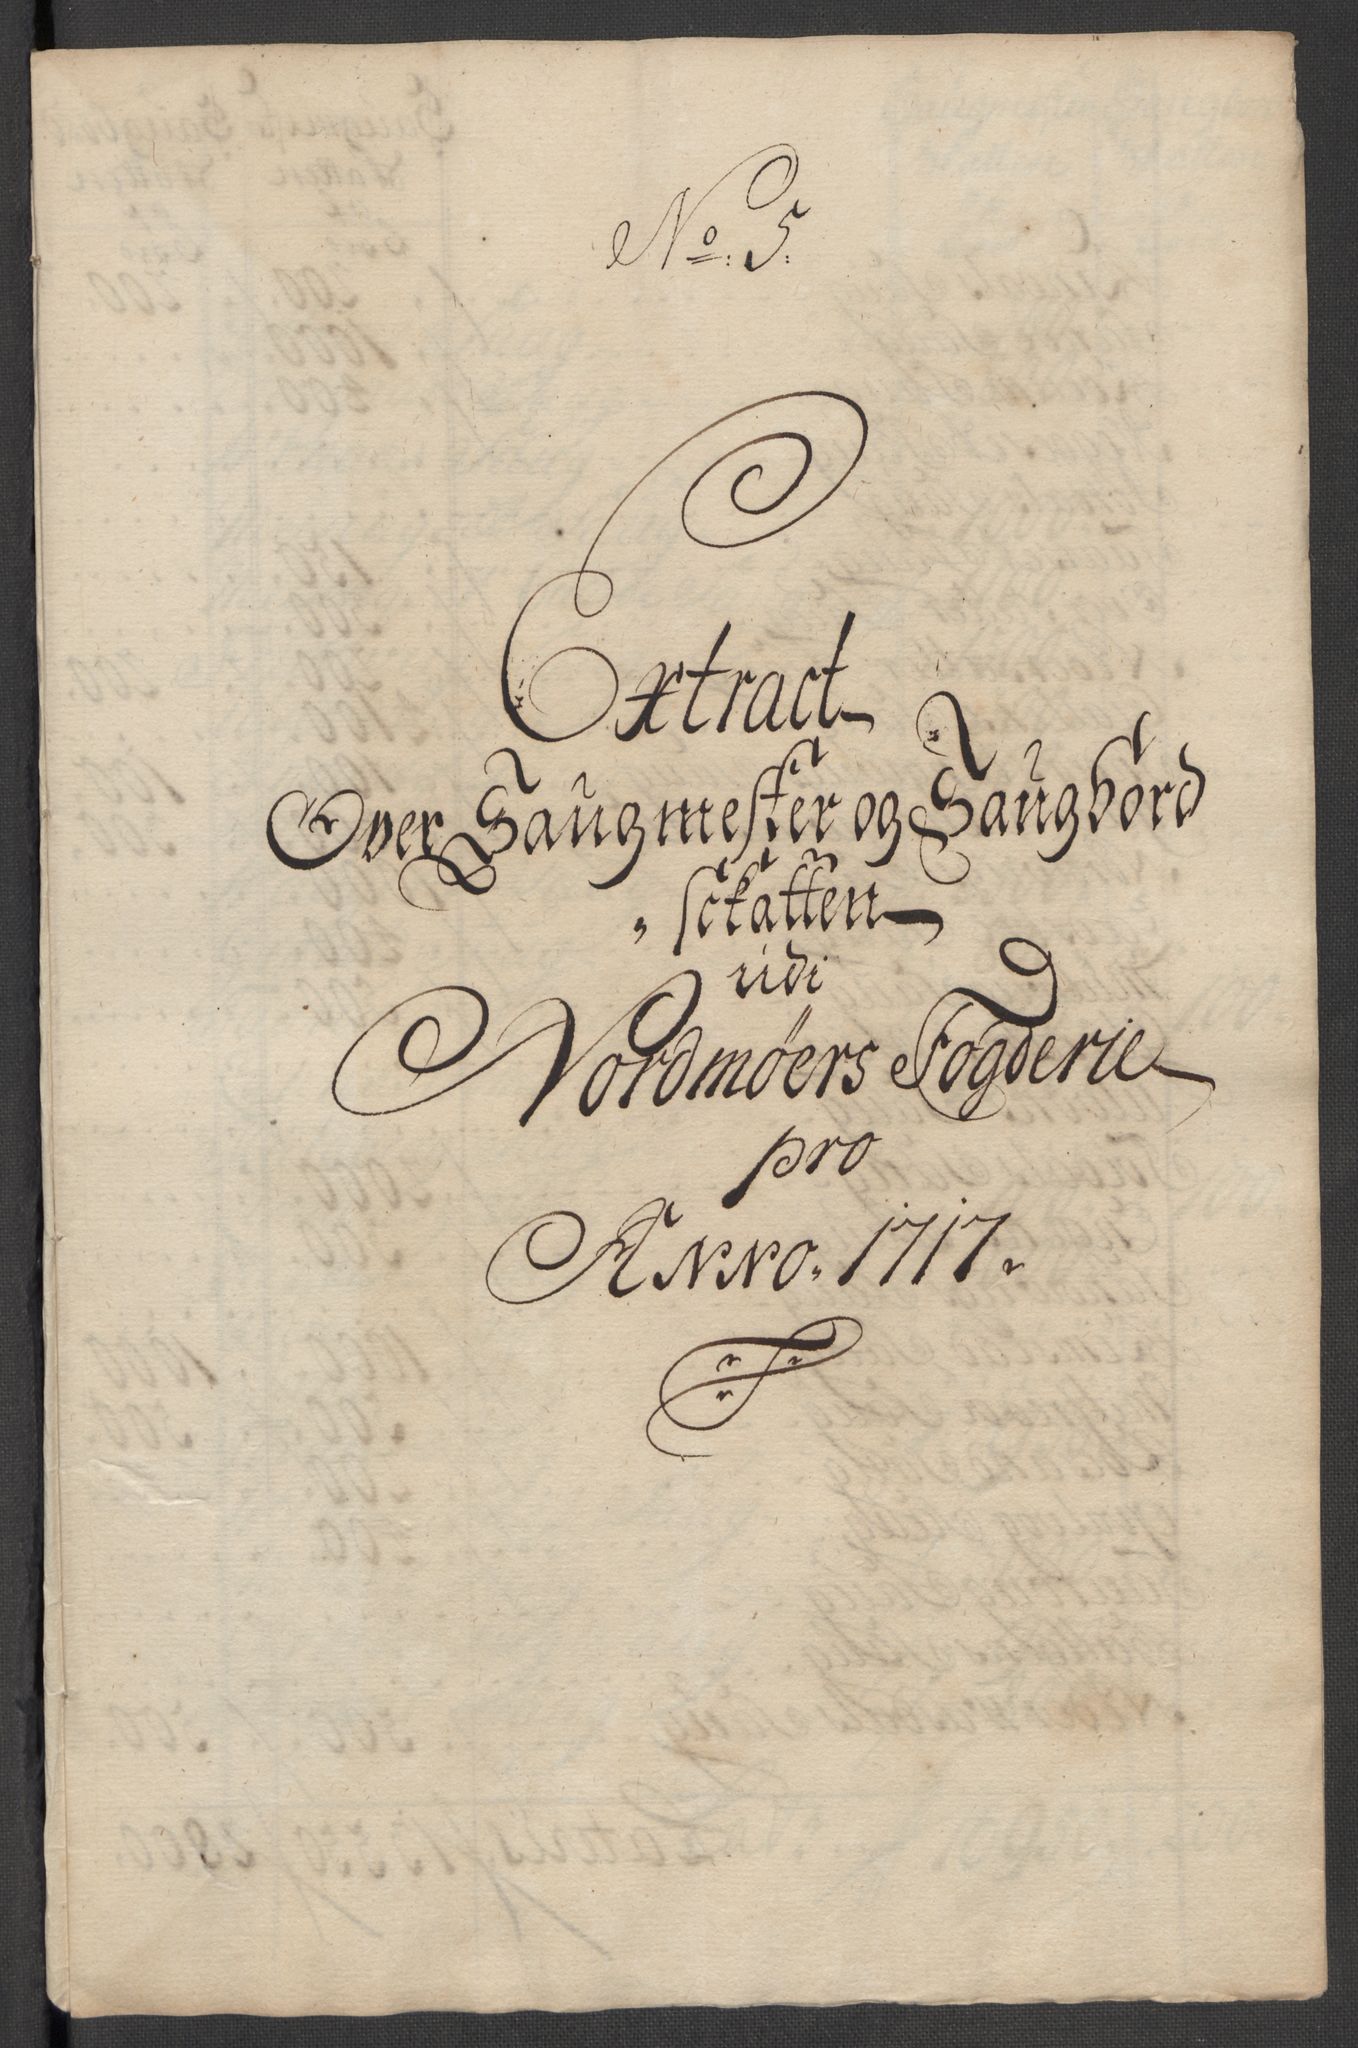 No: 5.
Extract
Over Saugmester og Saugbord
sckatten
udi
Nordmøers Fogderie
pro
Anno. 1717.